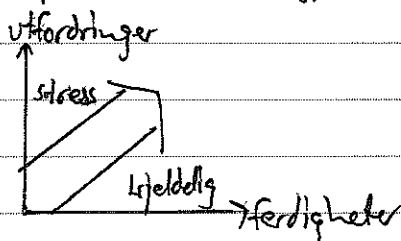 utfordringer
stress
kjedelig
ferdigheter